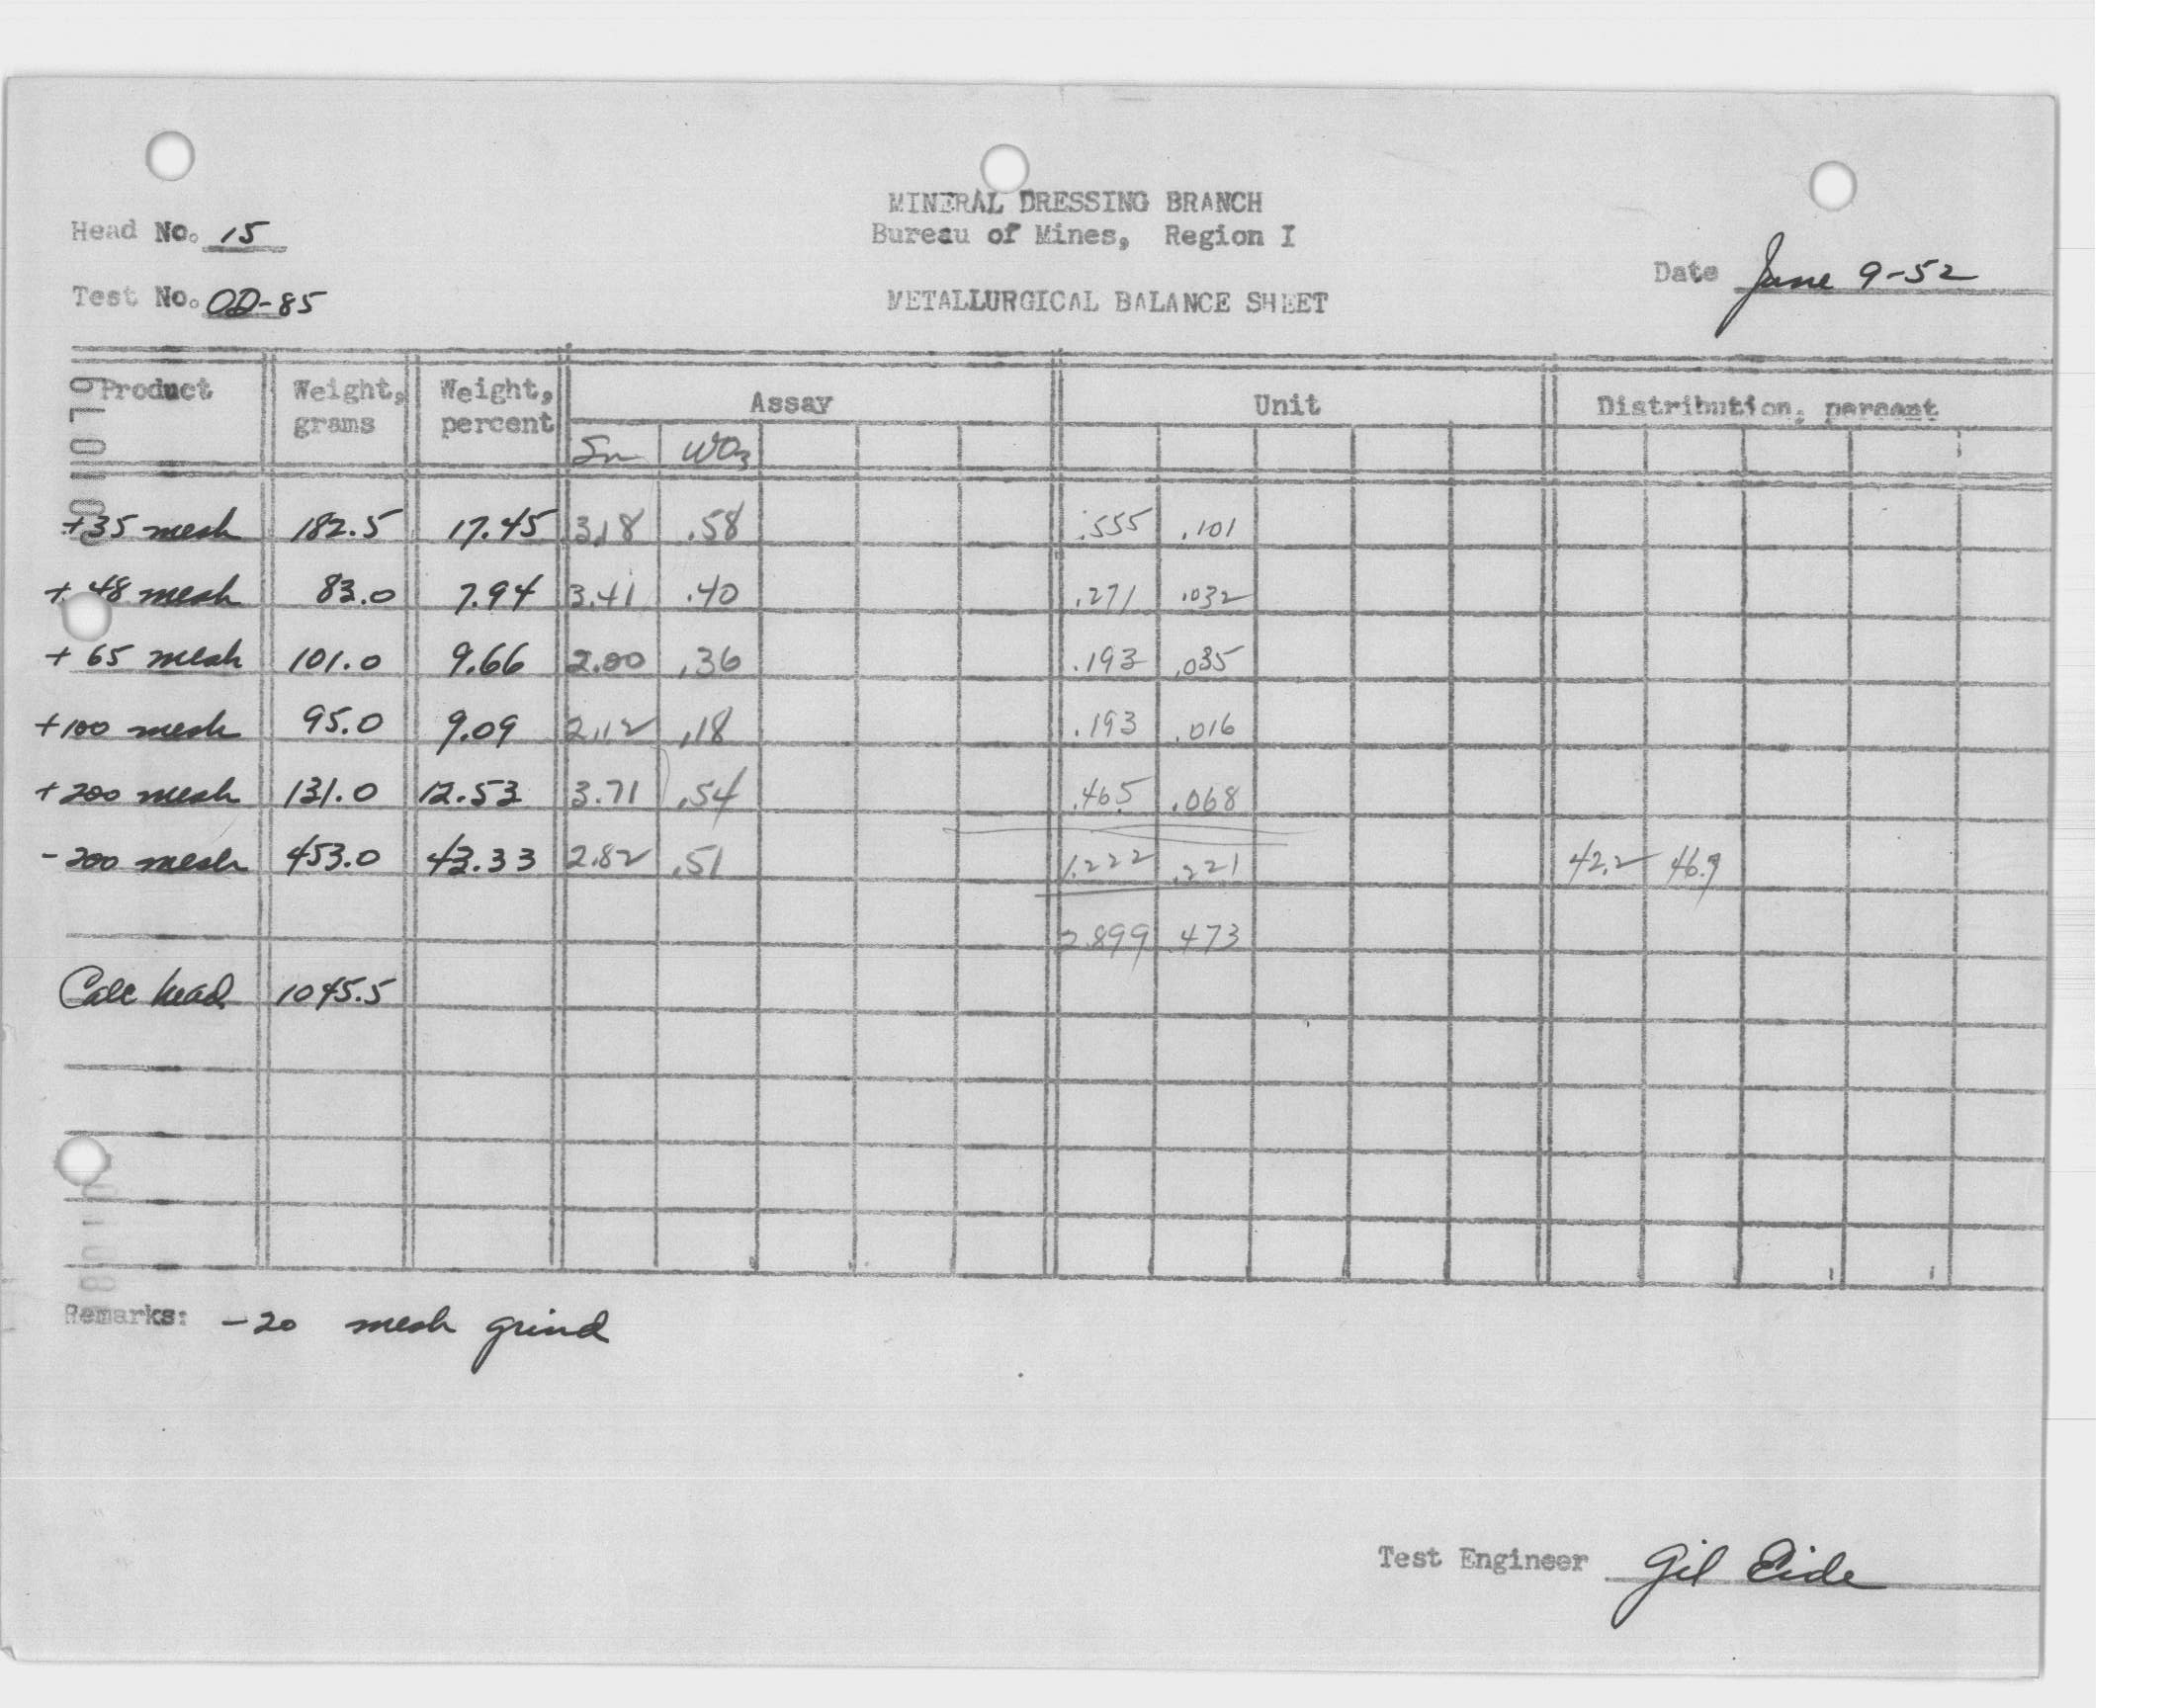 MINERAL DRESSING BRANCH
Head No. 15 Bureau of Mines, Region I
Date June 9-52
Test No. OD-85 METALLURGICAL BALANCE SHEET
Product Weight, grams Weight, percent Assay Unit Distribution, percent
Sn WO3
+35 mesh 182.5 17.45 3.18 .58 .555 .101
+48 mesh 83.0 7.94 3.41 .40 .271 .032
+65 mesh 101.0 9.66 2.00 .36 .193 .035
+100 mesh 95.0 9.09 2.12 .18 .193 .016
+200 mesh 131.0 12.53 3.71 .54 .465 .068
-200 mesh 453.0 43.33 2.82 .51 1.222 .221 42.2 46.7
2.899 .473
Calc head 1045.5
Remarks: -20 mesh grind
Test Engineer Gil Eide